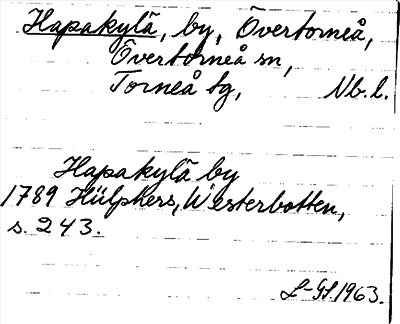 Hapakylä, by, Övertorneå,
Övertorneå sn,
Torneå tg, Nb. l.
Hapakylä by
1789 Hülphers, Westerbotten,
s. 243.
L-Gl. 1963.